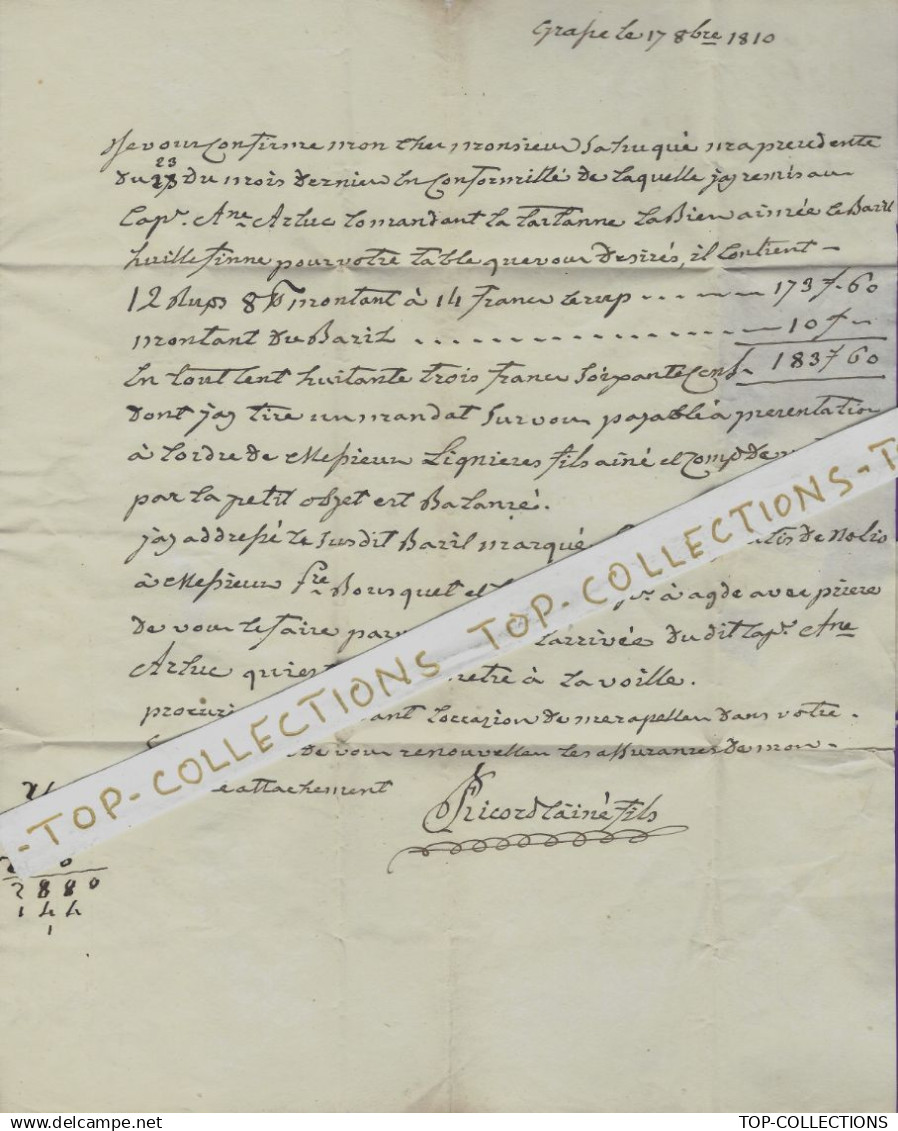 Grasse le 17 8bre 1810
Je vous Confirme mon cher monsieur Sahuqué ma precedente
23
du 18 du mois dernier En Conformitté de laquelle jay remis au
Capne. Ane. Arluc Comandant la tartanne la Bien aimée le Baril
huille finne pour votre table que vous desirés, il Contient -
12 Rups 8 ℔ montant à 14 francs le rup ... --- 173f.60
montant du Baril ............... --- 10f -
En tout Cent huitante trois francs Soixante Cens. 183f60
dont jay tire un mandat Sur vous payable à presentation
à l'ordre de Messieurs Lignieres fils ainé et Compe de
par la petit objet est Balancé.
jay addressé le Susdit Baril marqué de Nolis
à Messieurs fre. Bousquet et à agde avec priere
de vous le faire par l'arrivée du dit Cape. Ane
Arluc qui est à la voille.
l'occazion de me rapeller dans votre.
de vous renouveller les assurances de mon -
attachement
Ricord l'ainé fils
0
2 8 8 0
1 4 4
1
-TOP-COLLECTIONS TOP-COLLECTIONS-TO
TOP-COLLECTIONS